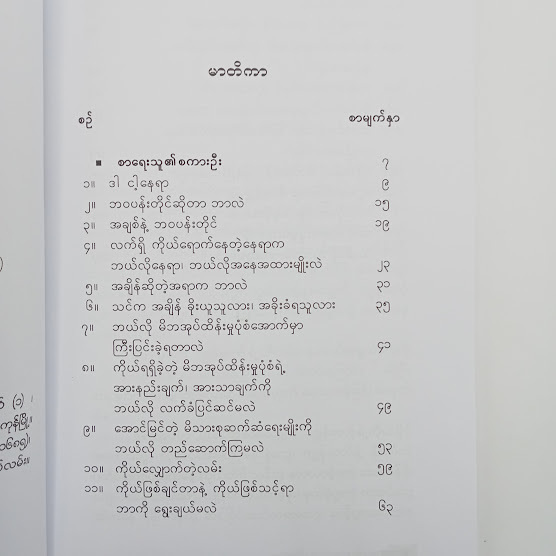 မာတိကာ
စဉ် စာမျက်နှာ
■ စာရေးသူ၏စကားဦး ၇
၁။ ဒါ ငါ့နေရာ ၉
၂။ ဘဝပန်းတိုင်ဆိုတာ ဘာလဲ ၁၅
၃။ အချစ်နဲ့ ဘဝပန်းတိုင် ၁၉
၄။ လက်ရှိ ကိုယ်ရောက်နေတဲ့နေရာက
ဘယ်လိုနေရာ၊ ဘယ်လိုအနေအထားမျိုးလဲ ၂၃
၅။ အချိန်ဆိုတဲ့အရာက ဘာလဲ ၃၁
၆။ သင်က အချိန် ခိုးယူသူလား၊ အခိုးခံရသူလား ၃၅
၇။ ဘယ်လို မိဘအုပ်ထိန်းမှုပုံစံအောက်မှာ
ကြီးပြင်းခဲ့ရတာလဲ ၄၁
၈။ ကိုယ်ရရှိခဲ့တဲ့ မိဘအုပ်ထိန်းမှုပုံစံရဲ့
အားနည်းချက်၊ အားသာချက်ကို
ဘယ်လို လက်ခံပြင်ဆင်မလဲ ၄၉
၉။ အောင်မြင်တဲ့ မိသားစုဆက်ဆံရေးမျိုးကို
ဘယ်လို တည်ဆောက်ကြမလဲ ၅၃
၁၀။ ကိုယ်လျှောက်တဲ့လမ်း ၅၉
၁၁။ ကိုယ်ဖြစ်ချင်တာနဲ့ ကိုယ်ဖြစ်သင့်ရာ
ဘာကို ရွေးချယ်မလဲ ၆၃
(၁) ၊
ကုန်မြို့။
၁၆၈၅)၊
လမ်း။